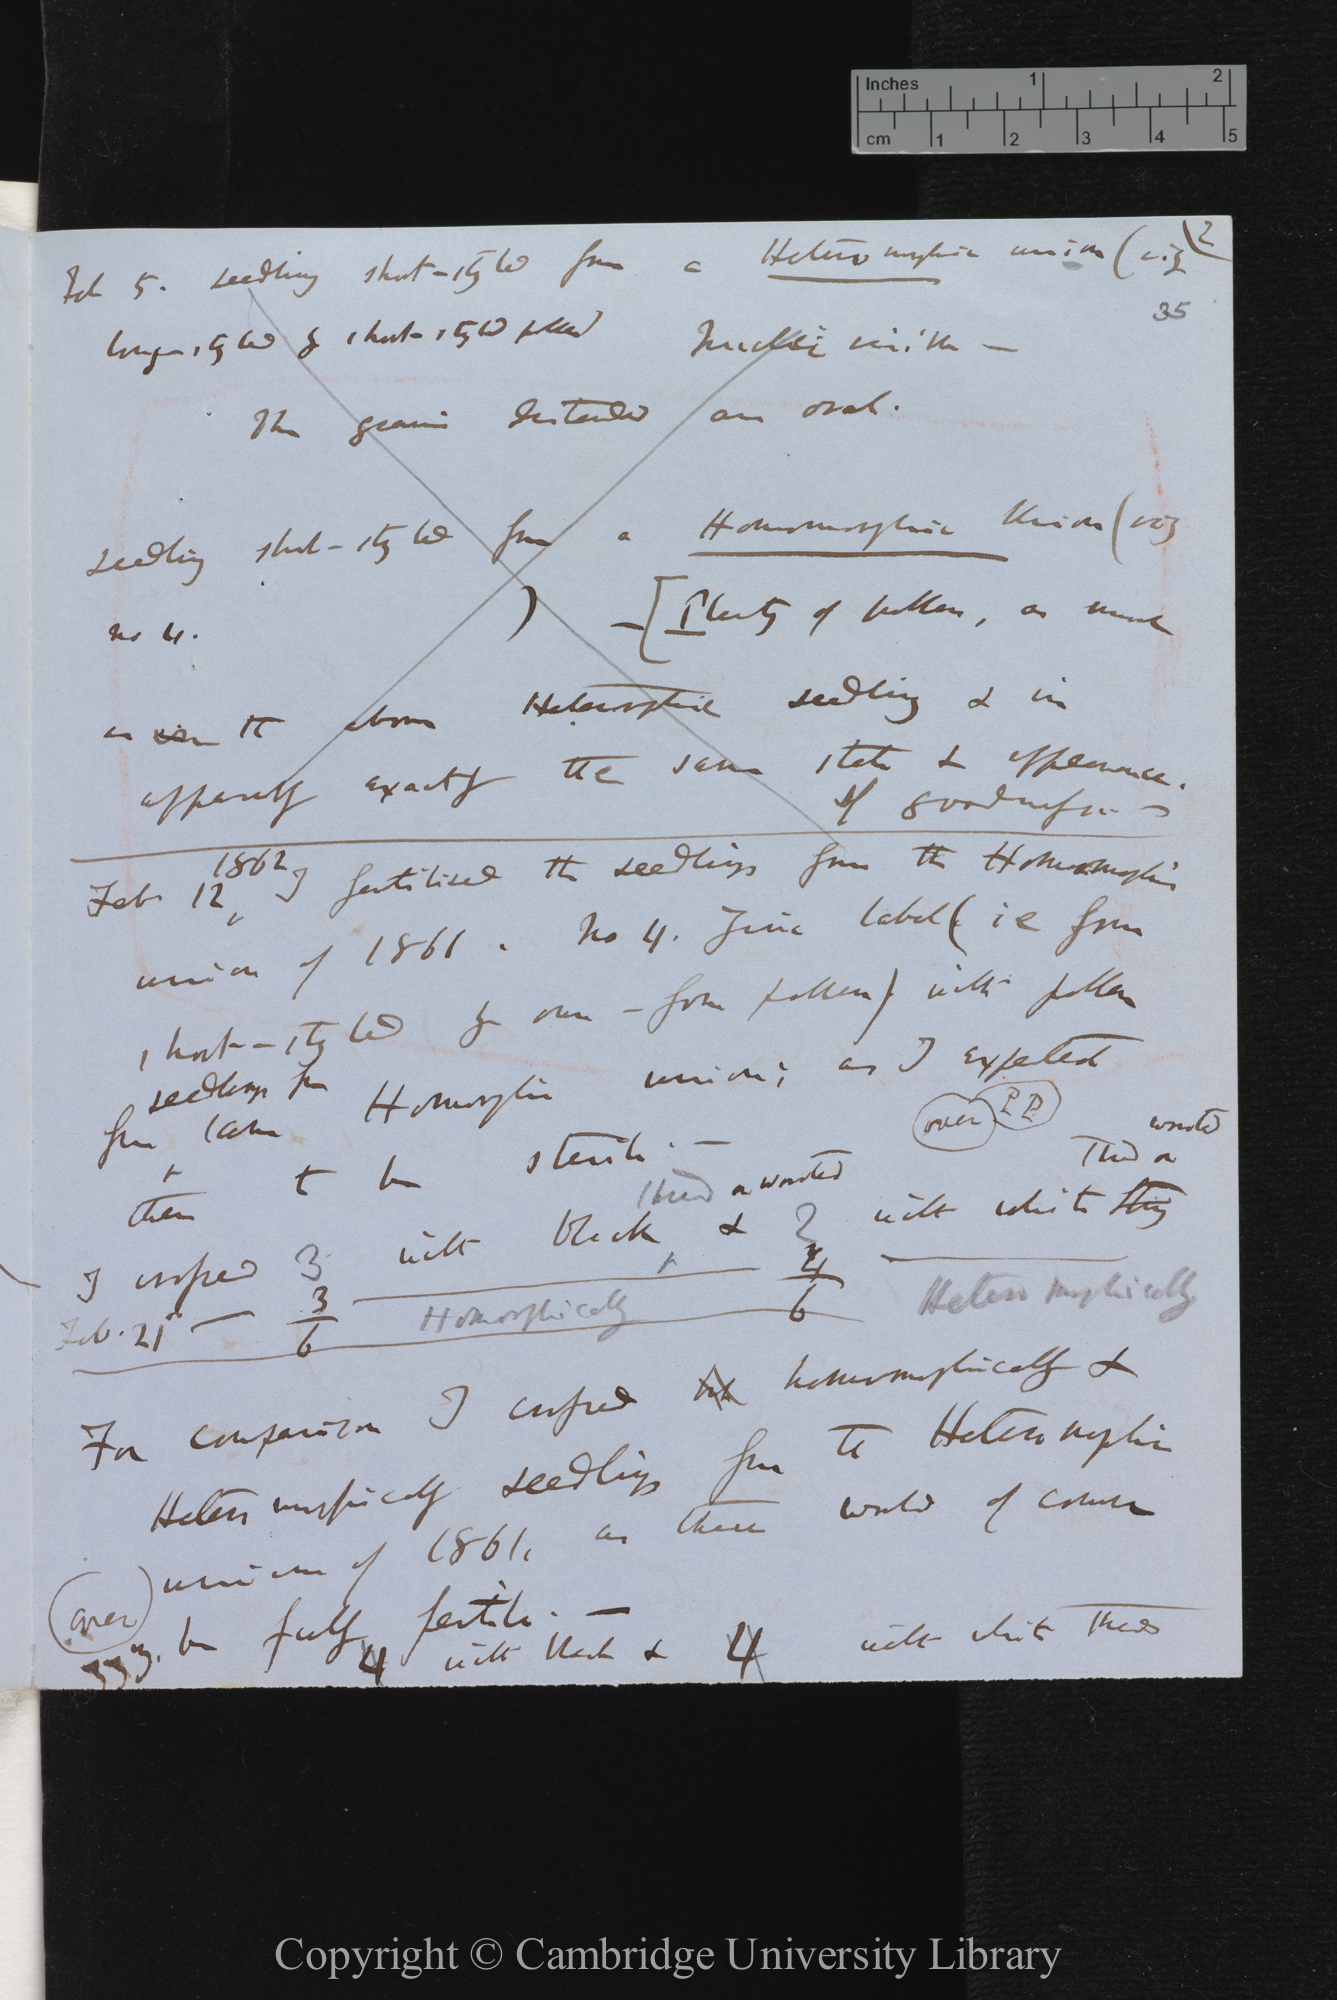 Inches 1 2
cm 1 2 3 4 5
2
Feb 5. seedling short-styled from a Heteromorphic union (viz
35
long-styled by short-styled pollen)
The grains distended are oval.
seedling short-styled from a Homomorphic Union (viz
no 4. ) — [Plenty of pollen, as much
as in the above Heteromorphic seedling & in
apparently exactly the same state & appearance.
of goodness. —
Feb 12, 1862 I fertilised the seedlings from the Homomorphic
union of 1861. No 4. Zinc label (ie from
short-styled by own-form pollen) with pollen
seedlings from
from same Homomorphic union; as I expected
over PP
them to be sterile. —
thread or worsted
Thread or worsted
I crossed 3 with black & 2 with white string
Feb. 21st — 3 4
6 Homomorphically 6 Heteromorphically
For comparison I crossed homomorphically &
Heteromorphically seedlings from the Heteromorphic
union of 1861, as these would of course
over
be fully fertile. —
4 with black & 4 with white thread
Copyright © Cambridge University Library